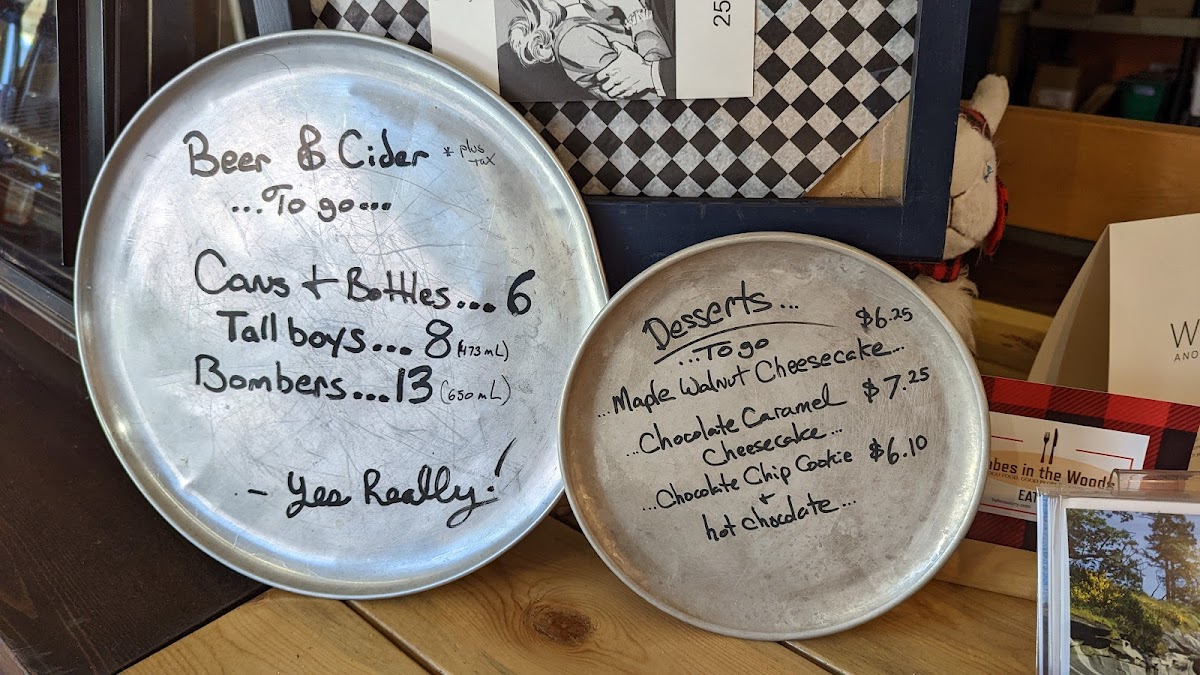 Beer & Cider * plus tax
...To go...
Cans + Bottles...6
Tall boys...8 (473 mL)
Bombers...13 (650 mL)
- Yes Really!
25
Desserts...
...To go
$6.25
...Maple Walnut Cheesecake...
$7.25
...Chocolate Caramel
Cheesecake...
$6.10
...Chocolate Chip Cookie
+
hot chocolate...
W
AND
bes in the Woods
EAT